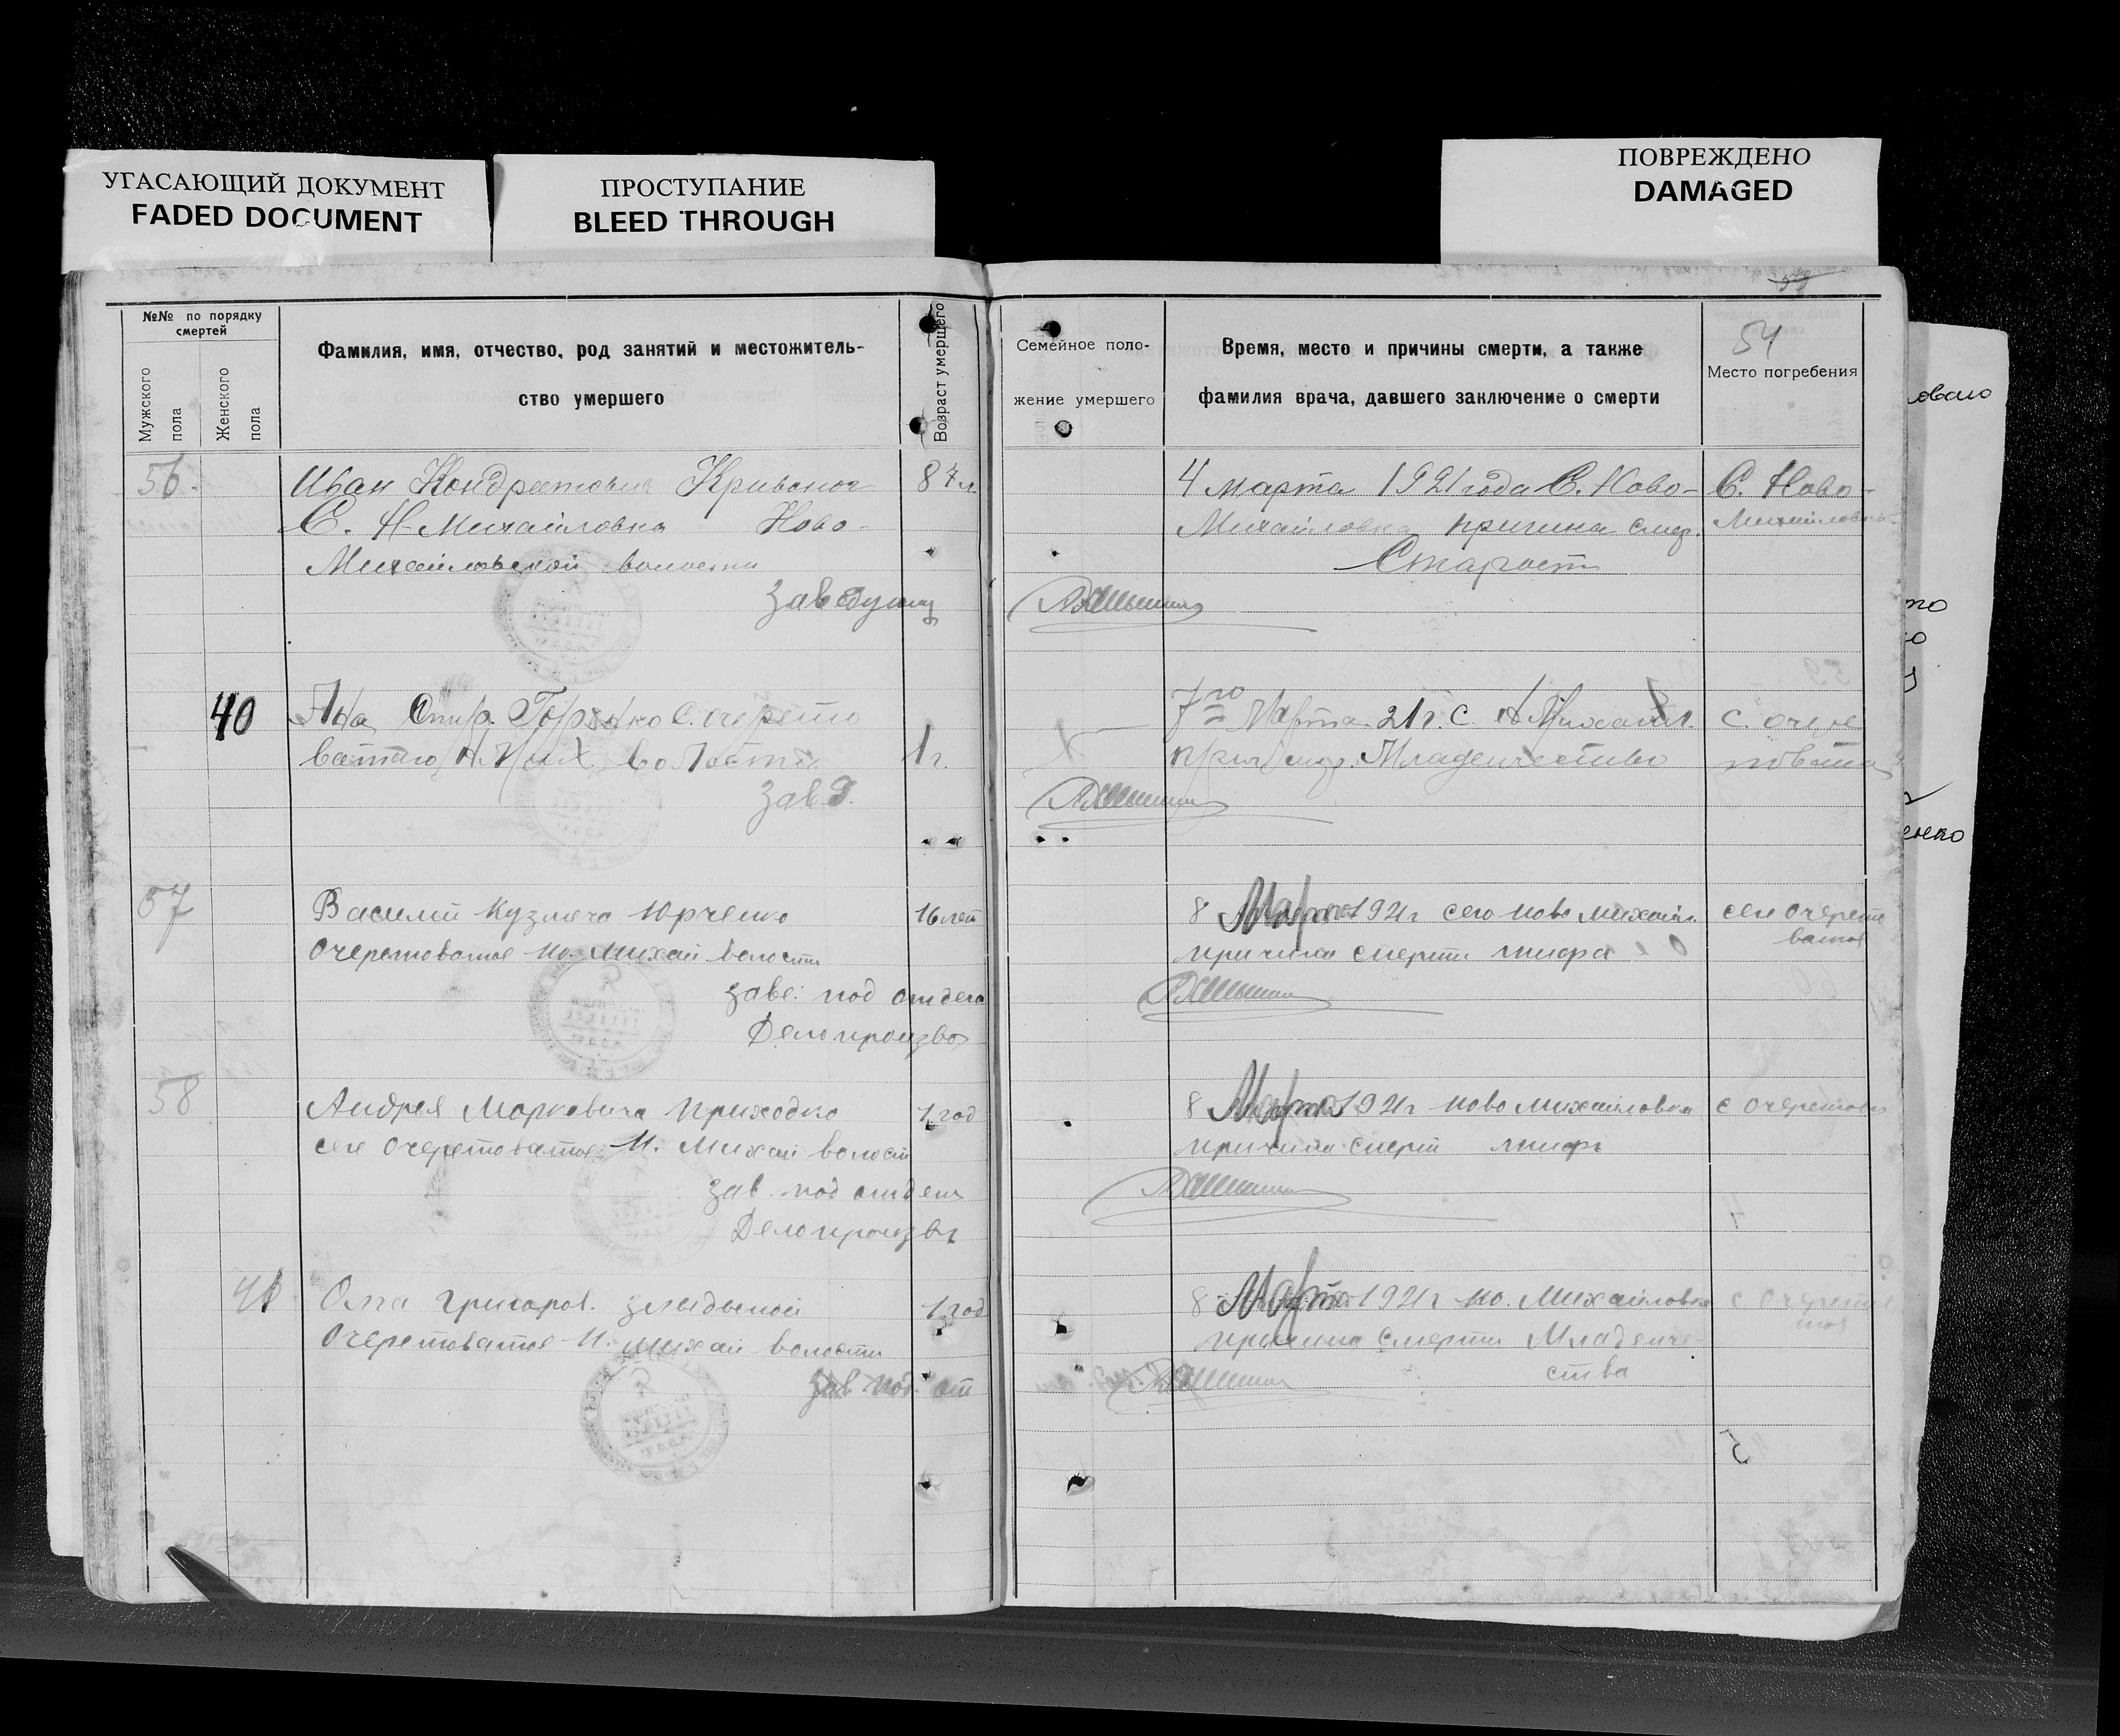 УГАСАЮЩИЙ ДОКУМЕНТ
FADED DOCUMENT
ПРОСТУПАНИЕ
BLEED THROUGH
ПОВРЕЖДЕНО
DAMAGED
№№ по порядку
смертей
Мужского
пола
Женского
пола
Фамилия, имя, отчество, род занятий и местожитель-
ство умершего
Возраст умершего
Семейное поло-
жение умершего
Время, место и причины смерти, а также
фамилия врача, давшего заключение о смерти
54
Место погребения
56.
Иван Кондратович Кривоног
87 л.
4 марта 1921 года С. Ново-
С. Ново-
С. Н-Михайловка Ново-
Михайловка причина смер.
Михайловка
Михайловской волости
Старост
Заведующ
40
Спир. С. Очерето
7го Марта 21 г. С. Н Михайл.
С. Очере
ватого Н. Мих. волости
1 г.
прич смер. Младенчество
товата
Завд.
57
Василий Кузмича Юрченко
16 лет
8 Марта 1921 г село ново михайл.
село Очерето
ватое
Очеретоватое но. Михай волости
причина смерти тифа
заве: под отдело
Делопроизво
58
Андрея Марковича Приходко
1 год
8 Марта 1921 г ново михайловка
с Очеретов
село Очеретоватое Н. Михай волости
причина смерти тиф
зав. под отдел
Делопроизв
41
Григоров.
1 год
8 Марта 1921 г но. Михайловка
с Очерето
Очеретоватое Н. Михай волости
причина смерти Младенче-
ства
зав под. от